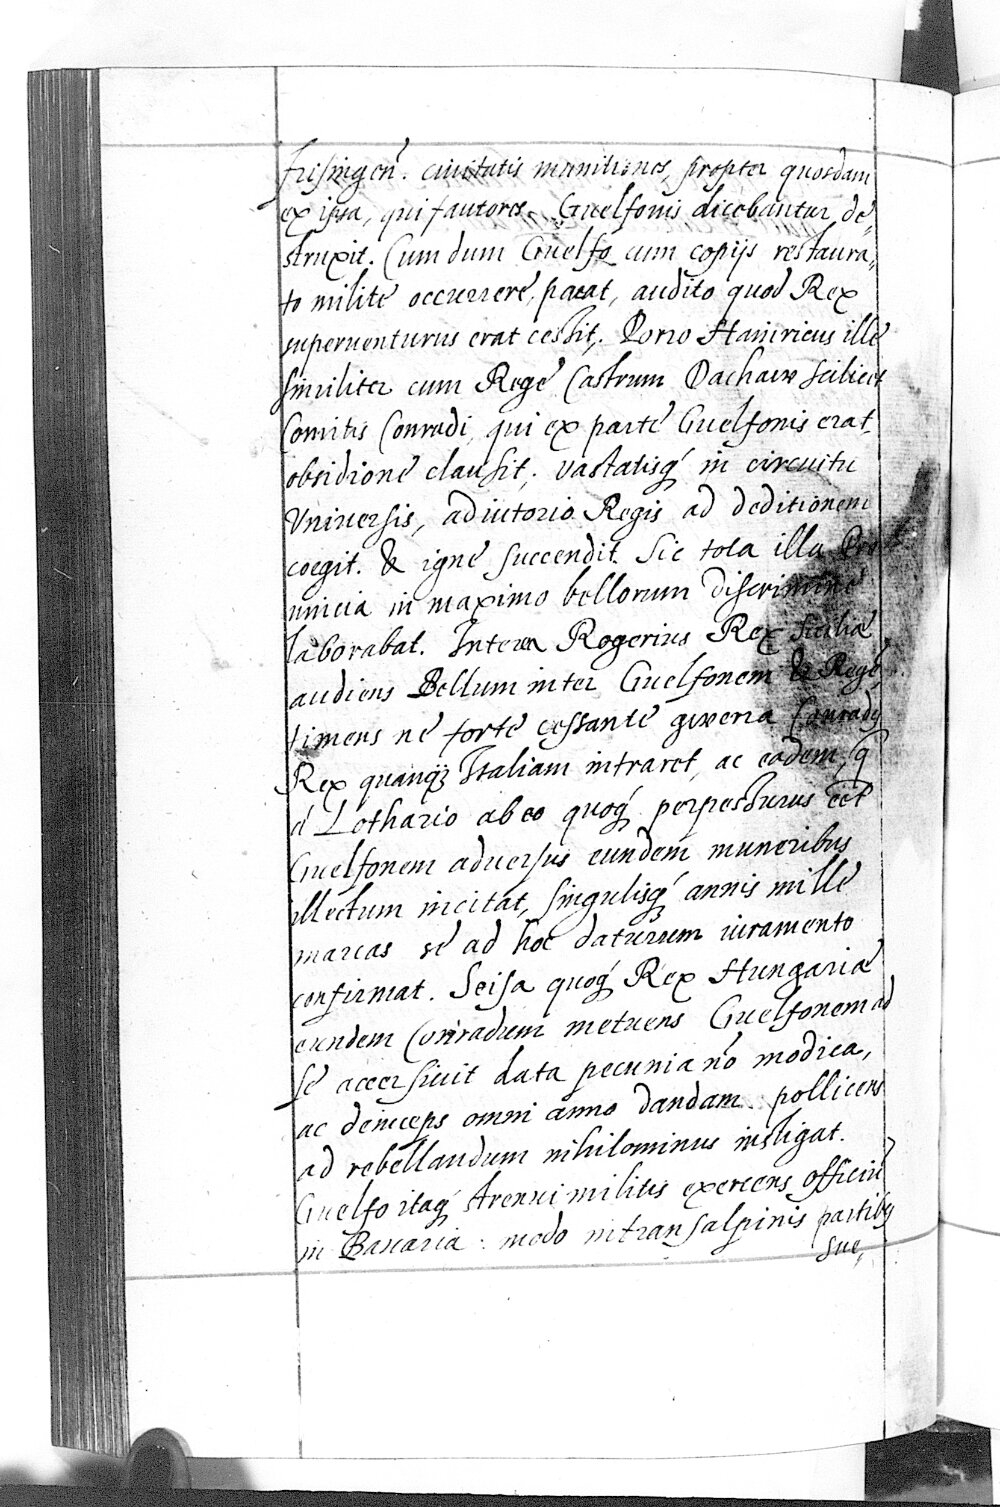 frisingen̄. ciuitatis munitiones, propter quosdam
ex ipsa, qui fautores Guelfonis dicebantur, de„
struxit. Cum dum Guelfo cum copijs restaura„
to milite occurrere, parat, audito quod Rex
superuenturus erat cessit. Porro Hainricus ille
similiter cum Rege Castrum Dachaw scilicet
Comitis Conradi, qui ex parte Guelfonis erat,
obsidione clausit; vastatisq́ in circuitu
Vniuersis, adiutorio Regis ad deditionem
coegit. & igne succendit. Sic tota illa Pro
uincia in maximo bellorum discrimine
laborabat. Interea Rogerius Rex Siciliæ
audiens Bellum inter Guelfonem & Regē,
timens ne forte cessante gwerra Conradꝯ
Rex quamq́ Italiam intraret, ac eadem, q̄
á Lothario ab eo quoq́ perpessurus eēt
Guelfonem aduersus eundem muneribus
illectum incitat, singulisq́ annis mille
marcas se ad hoc daturum iuramento
confirmat. Seisa quoq́ Rex Hungariæ
eundem Conradum metuens Guelfonem ad
se accersiuit data pecunia nō modica,
ac deinceps omni anno dandam pollicens
ad rebellandum nihilominus instigat.
Guelfo itaq́ strenui militis exercens officiū
in Bauaria : modo in transalpinis partibꝯ
sue„